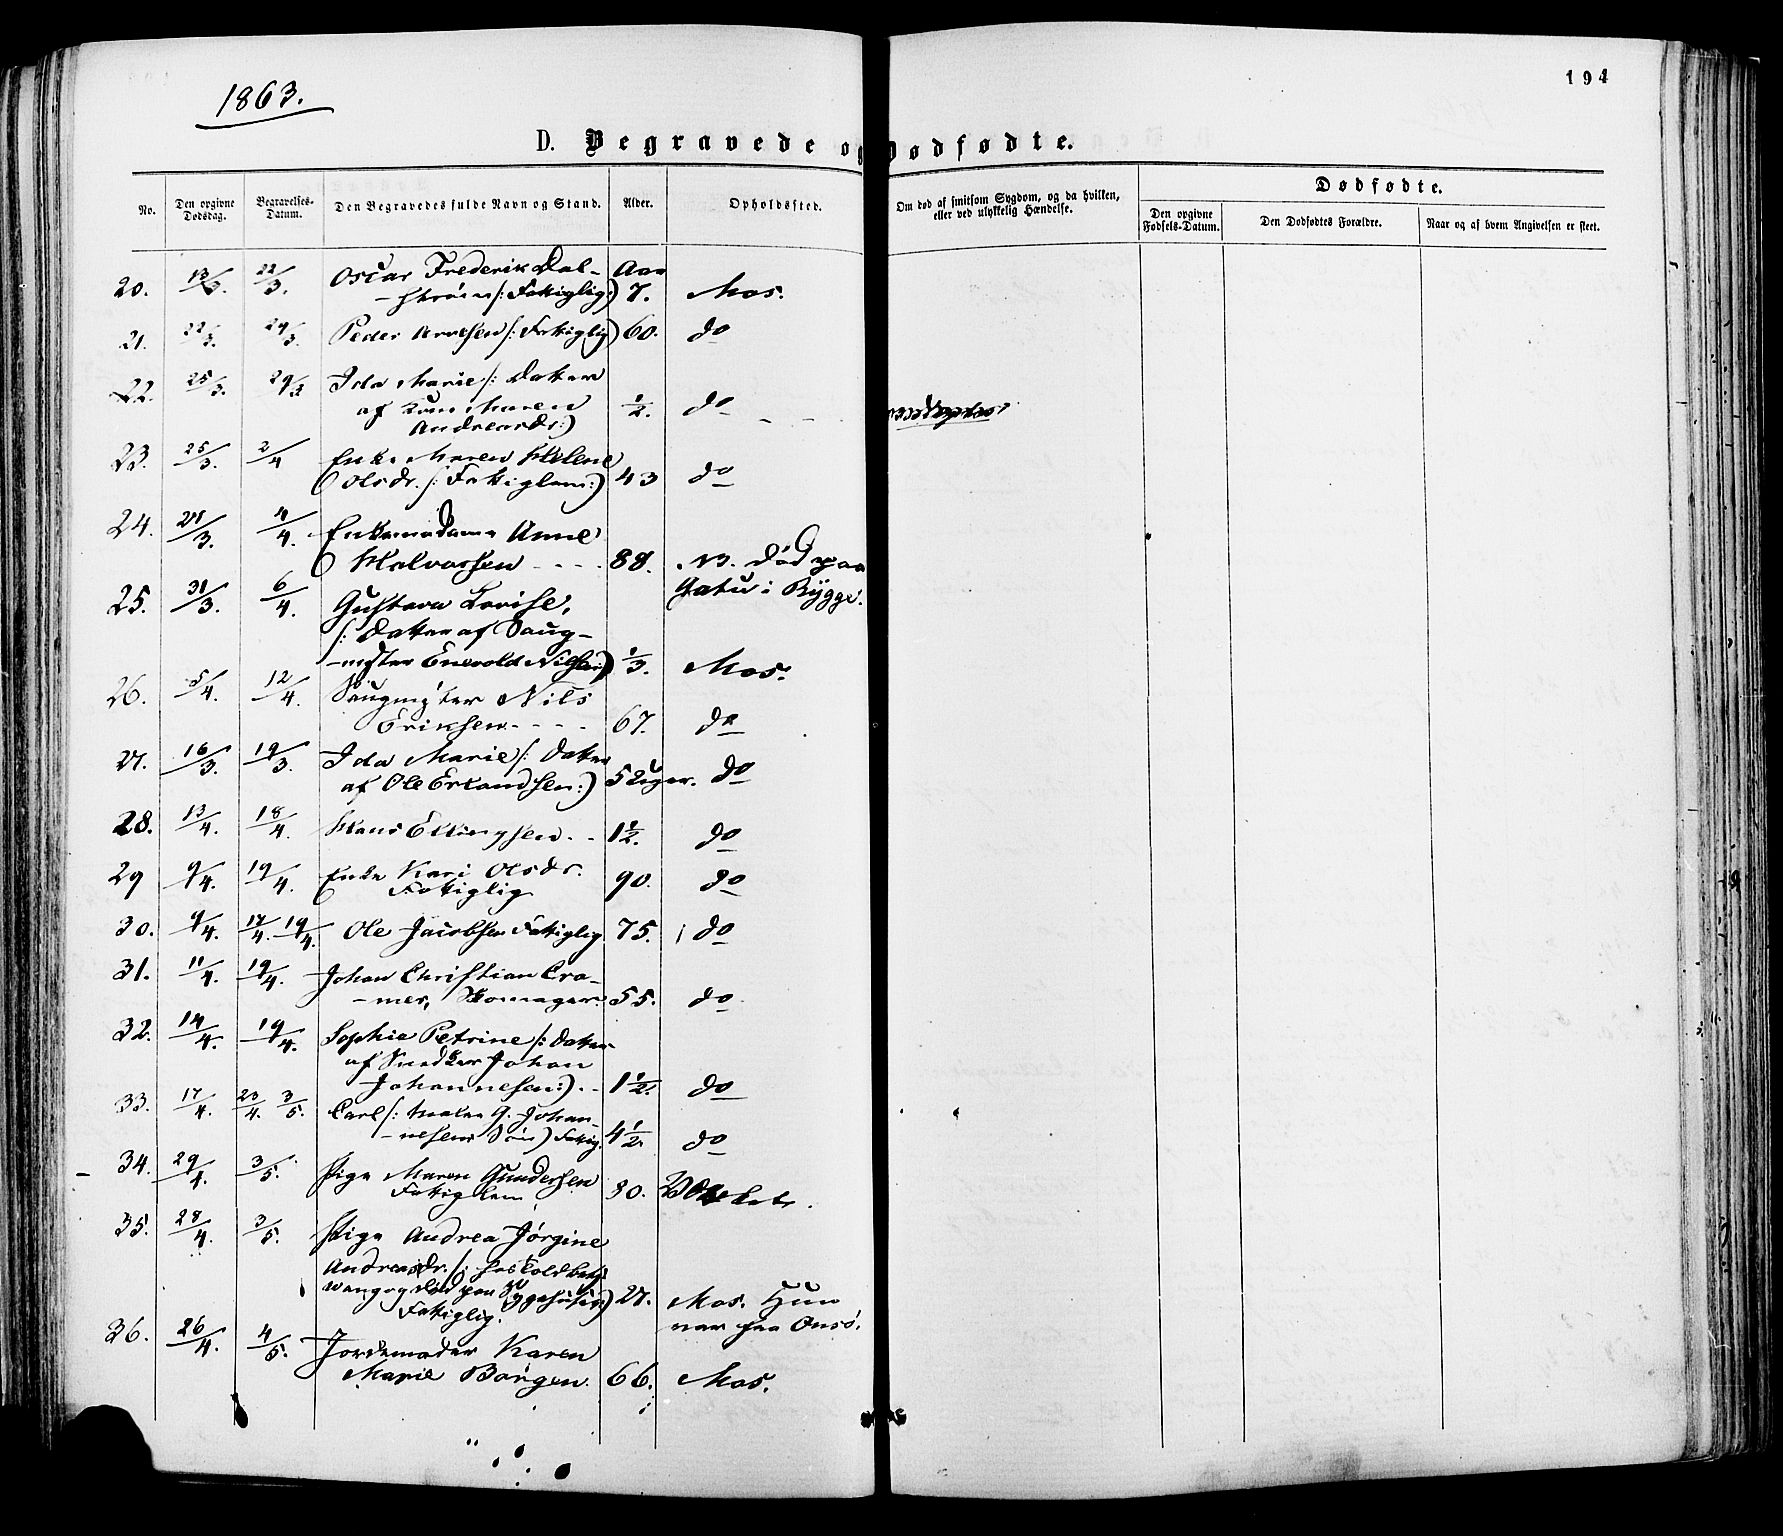 1863.
194
D. Begravede og Dødfødte.
No. Den opgivne Dødsdag. Begravelses-Datum. Den Begravedes fulde Navn og Stand. Alder. Opholdssted. Om død af smitsom Sygdom, og da hvilken, eller ved ulykkelig Hændelse. Dødfødte.
Den opgivne Fødsels-Datum. Den Dødfødtes Forældre. Naar og af hvem Angivelsen er skeet.
20. 13/3. 22/3. Oscar Frederik Dal- Aar
-strøm /: Fattiglig :) 7. Mos.
21. 22/3. 29/3. Peder Arnesen /: Fattiglig) 60. do
22. 25/3. 29/3 Ida Marie /: Datter
af Maren 1/2. do
Andreasdr :)
23. 25/3. 2/4 Enke Maren Helene
Olsdr. /: Fattiglem :) 43 do
24. 21/3. 4/4. Enkemadame Anne
Halvorsen - - - 88. NB. død paa
25. 31/3. 6/4. Gustava Lovise, i Rygge.
/: Datter af Saug-
-mester Enevold Nilsen :) 1/3. Mos.
26. 5/4. 12/4. Saugmester Nils
Eriksen - - - 67. do
27. 16/3. 19/3. Ida Marie /: Datter
af Ole Erlandsen :) 5 Uger. do
28. 13/4. 18/4. Hans Ellingsen. - 1 1/2. do
29 9/4. 19/4. Enke Kari Olsdr.
Fattiglig 90. do
30. 9/4. 17/4. 19/4. Ole Jacobsen Fattiglig 75. do
31. 11/4. 19/4. Johan Christian Cra-
-mer, Skomager. 55. do
32. 14/4. 19/4. Sophie Petrine /: Datter
af Snedker Johan
Johannesen :). - 1 1/2. do
33. 17/4. 23/4. 3/5. Carl /: Maler G. Johan-
-nesens Søn) Fattig. 4 1/2. do
34. 29/4. 3/5. Pige Maren Gundersen
Fattiglem 30.
35. 28/4. 3/5. Pige Andrea Jørgine
Andreasdr. /:
og død paa Sygehuset) 27. Mos. Hun
Fattiglig. var fra Onsø.
36. 26/4. 4/5. Jordemoder Karen
Marie Børgen. 66. Mos.